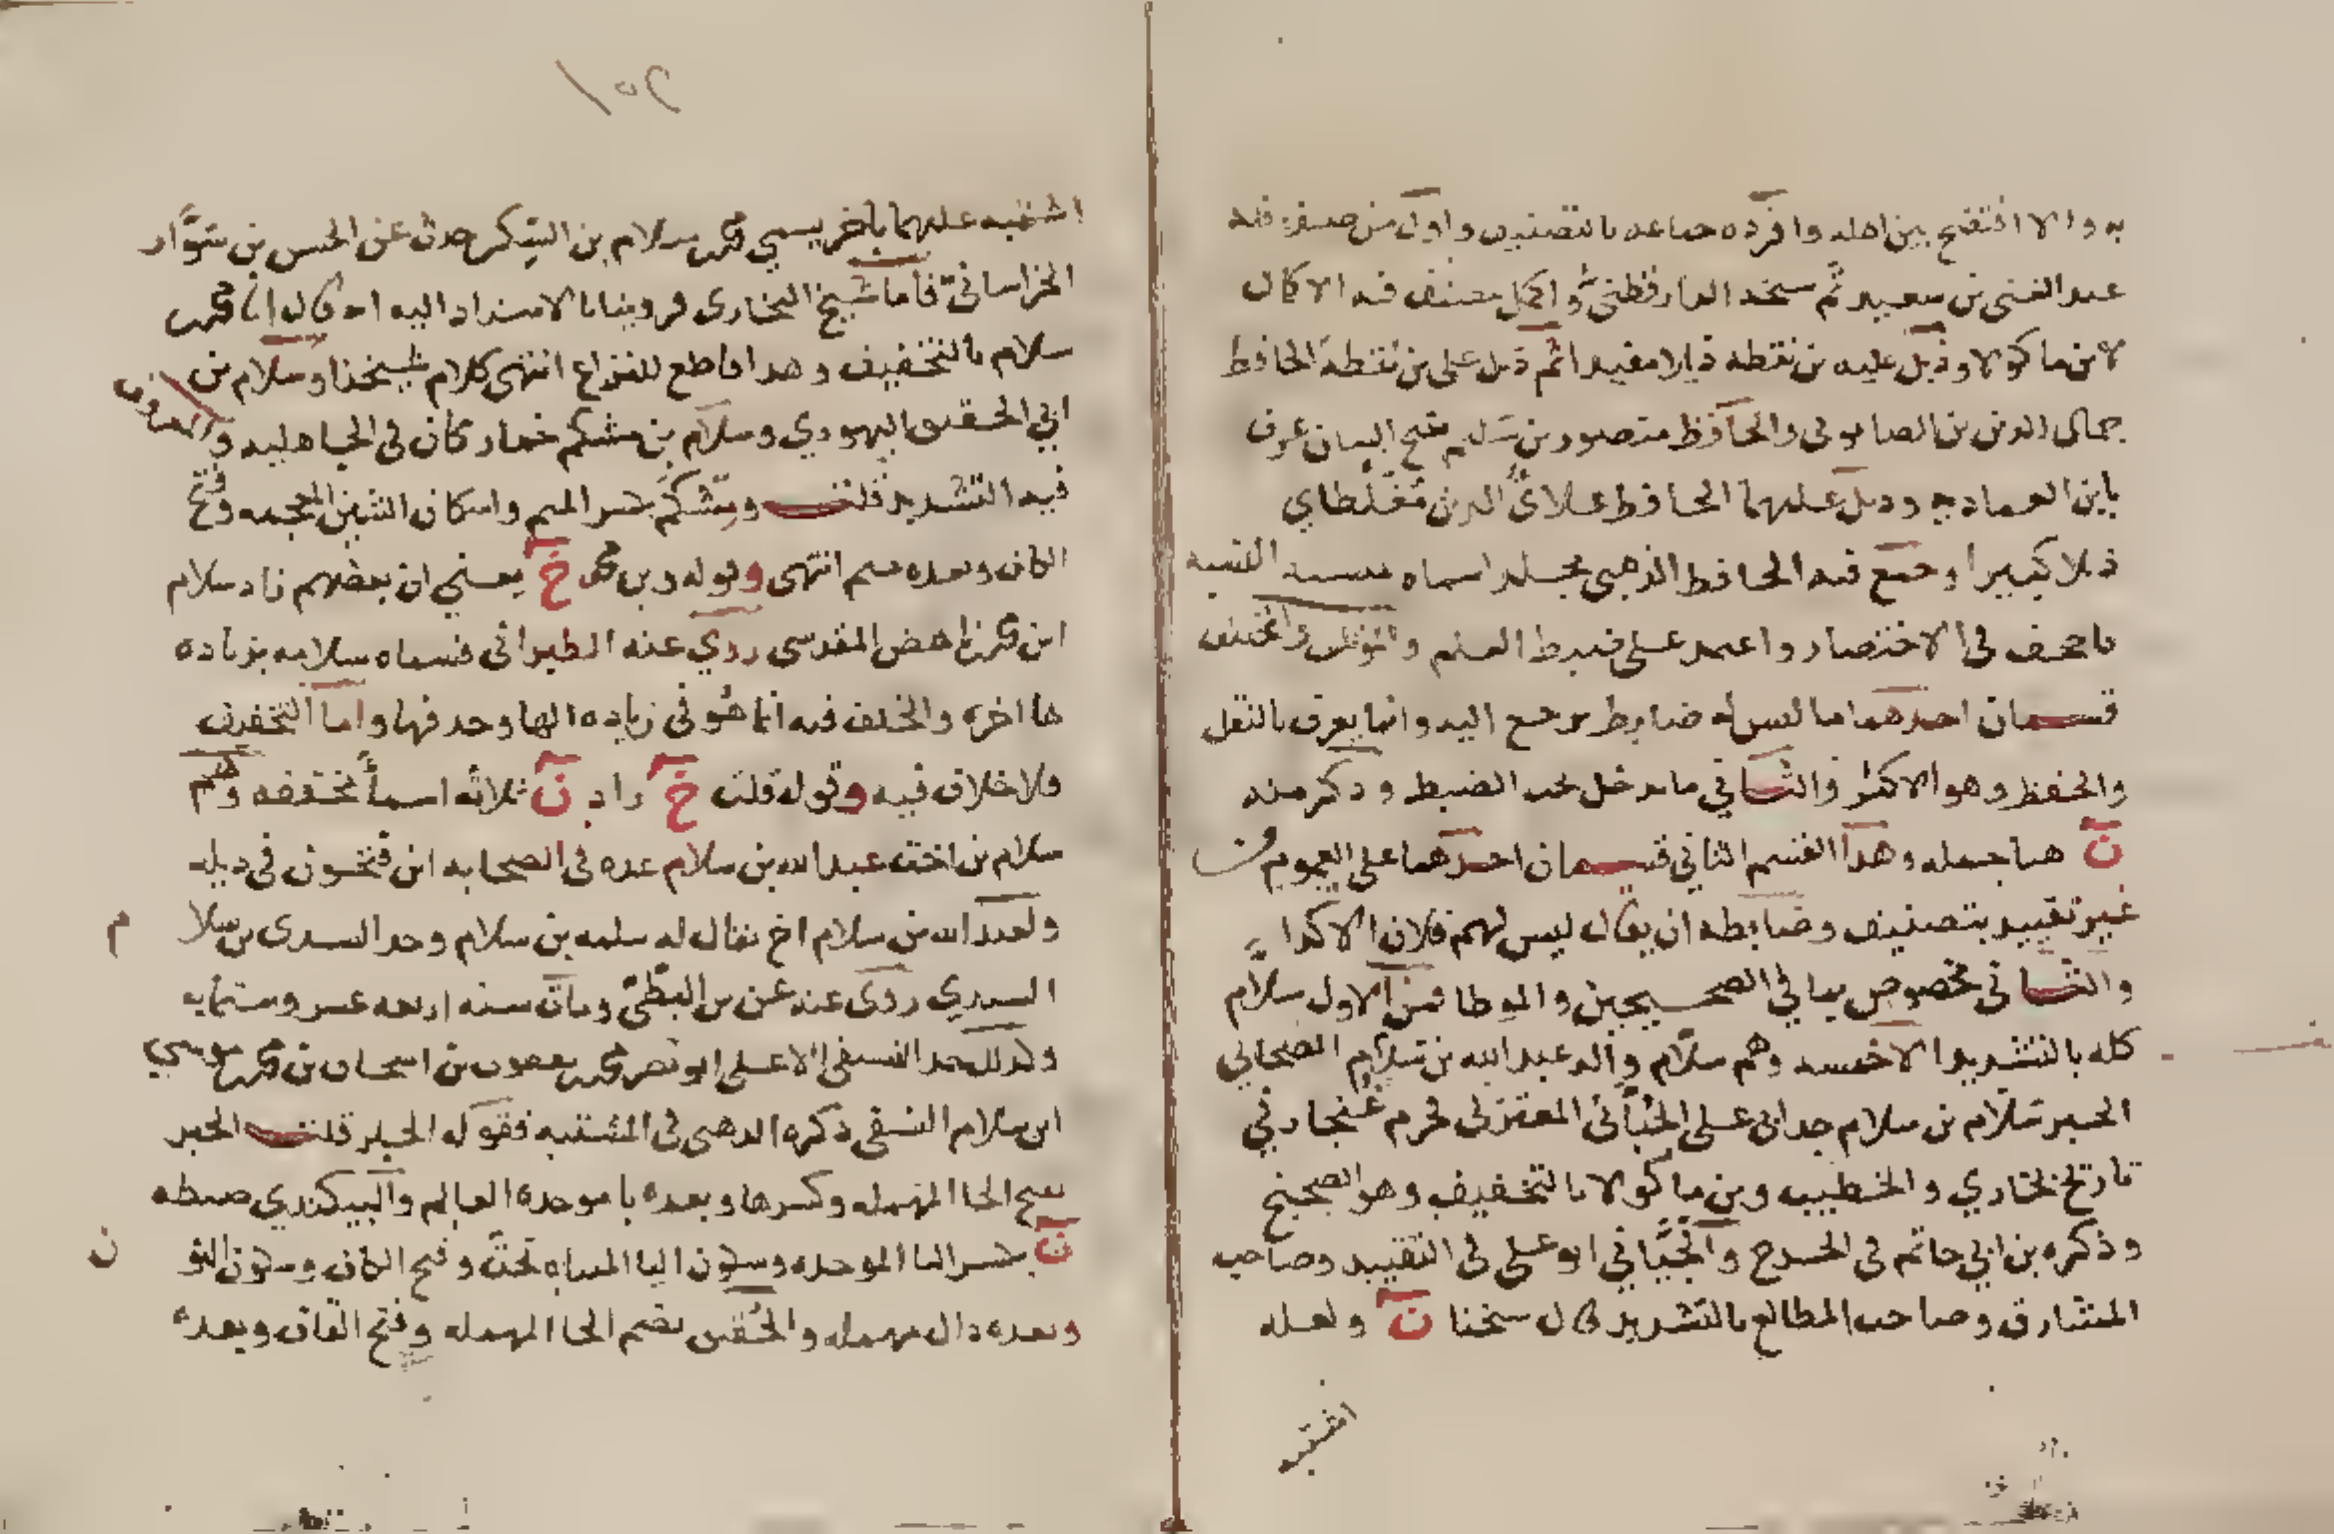 به والا افتضح بين اهله وافرده جماعه بالتصنيف واول من صنف فيه
عبد الغني بن سعيد ثم شيخه الدارقطني واكمل مصنف فيه الاكمال
لابن ماكولا وذيل عليه بن نقطه ذيلا مفيدا ثم ذيل على بن نقطة الحافظ
جمال الدين بن الصابوني والحافظ منصور بن سليم عرف
بابن العماديه وذيل عليهما الحافظ علاى الدين مغلطاي
ذيلا كبيرا وجمع فيه الحافظ الذهبي مجلدا سماه مشتبه النسبه
فاجحف في الاختصار واعتمد على ضبط القلم والمؤتلف والمختلف
قسمان احدهما ما ليس له ضابط يرجع اليه وانما يعرف بالنقل
والحفظ وهو الاكثر والثاني ما يدخل تحت الضبط وذكر منه
ن هنا جمله وهذا القسم الثاني قسمان احدهما على العموم من
غير تقييد بتصنيف وضابطه ان يقال ليس لهم فلان الا كذا
والثاني مخصوص بما في الصحيحين والموطا فمن الاول سلام
كله بالتشديد الا خمسه وهم سلام والد عبد الله بن سلام الصحابي
الحبر سلام بن سلام جد ابي على الجبائي المعتزلي فجزم غنجار في
تاريخ بخاري والخطيب وبن ماكولا بالتخفيف وهو الصحيح
وذكره بن ابي حاتم في الجرح والجياني ابو على في التقييد وصاحب
المشارق وصاحب المطالع بالتشديد قال شيخنا ن ولعله
اشتبه
٢٥١
اشتبه عليهما باخر يسمي محمد بن سلام بن السكن حدث عن الحسن بن سوار
الخراساني فاما شيخ البخاري فروينا بالاسناد اليه انه قال انا محمد بن
سلام بالتخفيف وهذا قاطع للنزاع انتهى كلام شيخنا وسلام بن
ابي الحقيق اليهودي وسلام بن مشكم خمار كان في الجاهليه والمعروف
فيه التشديد قلت ومشكم بكسر الميم واسكان الشين المعجمه وفتح
الكاف وبعده ميم انتهى وقوله وبن محمد خ يعني ان بعضهم زاد سلام
ابن محمد بن ناهض المقدسي روي عنه الطبراني فسماه سلامه بزياده
ها اخره والخلف فيه انما هو في زياده الها وحذفها واما التخفيف
فلا خلاف فيه وقوله قلت خ زاد ن ثلاثه اسما مخففه وهم
سلام بن اخت عبد الله بن سلام عده في الصحابه ابن فتحون في ذيله
ولعبد الله بن سلام اخ يقال له سلمه بن سلام وجد السيدى بن سلام
السيدي روى عنه عن بن البطي ومات سنه اربعه عشر وستمايه
وكذلك جد النسفي الاعلى ابو نصر محمد بن يعقوب بن اسحاق بن محمد بن موسي
ابن سلام النسفي ذكره الذهبي في المشتبه فقوله الحبر قلت الحبر
بفتح الحا المهمله وكسرها وبعده با موحده العالم والبيكندي ضبطه
ن بكسر البا الموحده وسكون اليا المثناه تحت وفتح الكاف وسكون النون
وبعده دال مهمله والحقيق بضم الحا المهمله وفتح القاف وبعده